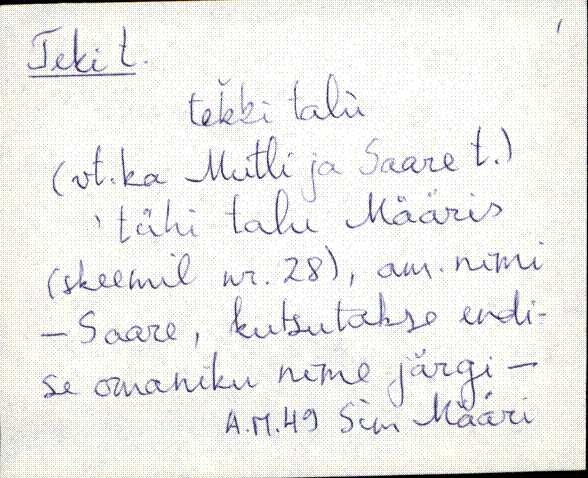 Teki t.
tekki talu
(vt. ka Mutli ja Saare t.)
'tühi talu Määris
(skeemil nr. 28), am. nimi
– Saare, kutsutakse endi-
se omaniku nime järgi –
A.M.49 Sim Määri